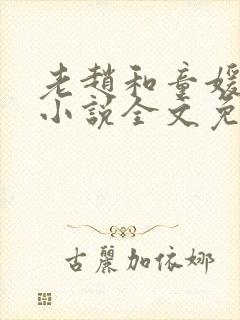 老趙和童媛
小說全文免
古麗加依娜